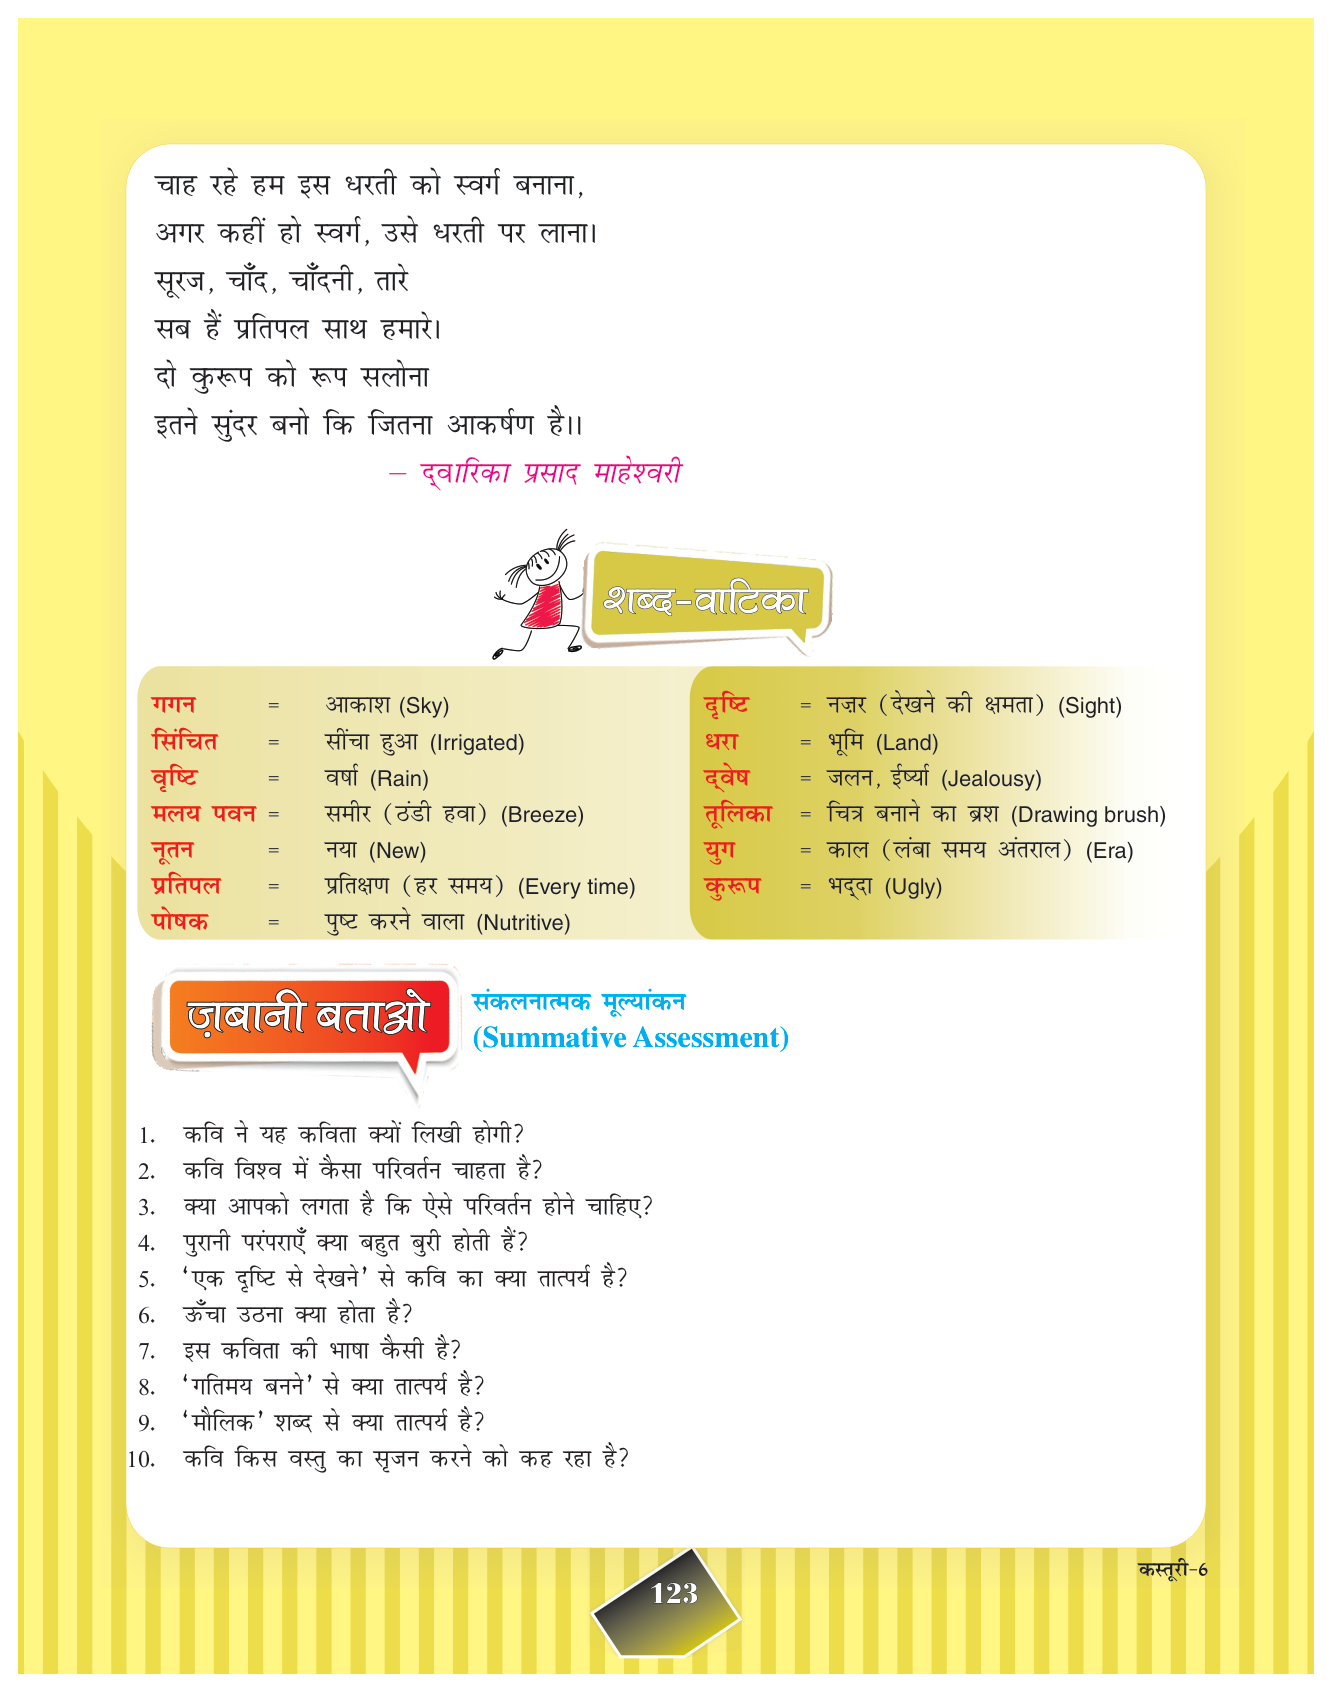 चाह रहे हम इस धरती को स्वर्ग बनाना,
अगर कहीं हो स्वर्ग, उसे धरती पर लाना।
सूरज, चाँद, चाँदनी, तारे
सब हैं प्रतिपल साथ हमारे।
दो कुरूप को रूप सलोना
इतने सुंदर बनो कि जितना आकर्षण है।।
– द्वारिका प्रसाद माहेश्वरी
शब्द-वाटिका
गगन = आकाश (Sky)
सिंचित = सींचा हुआ (Irrigated)
वृष्टि = वर्षा (Rain)
मलय पवन = समीर (ठंडी हवा) (Breeze)
नूतन = नया (New)
प्रतिपल = प्रतिक्षण (हर समय) (Every time)
पोषक = पुष्ट करने वाला (Nutritive)
दृष्टि = नज़र (देखने की क्षमता) (Sight)
धरा = भूमि (Land)
द्वेष = जलन, ईर्ष्या (Jealousy)
तूलिका = चित्र बनाने का ब्रश (Drawing brush)
युग = काल (लंबा समय अंतराल) (Era)
कुरूप = भद्दा (Ugly)
ज़बानी बताओ
संकलनात्मक मूल्यांकन
(Summative Assessment)
1. कवि ने यह कविता क्यों लिखी होगी?
2. कवि विश्व में कैसा परिवर्तन चाहता है?
3. क्या आपको लगता है कि ऐसे परिवर्तन होने चाहिए?
4. पुरानी परंपराएँ क्या बहुत बुरी होती हैं?
5. ‘एक दृष्टि से देखने’ से कवि का क्या तात्पर्य है?
6. ऊँचा उठना क्या होता है?
7. इस कविता की भाषा कैसी है?
8. ‘गतिमय बनने’ से क्या तात्पर्य है?
9. ‘मौलिक’ शब्द से क्या तात्पर्य है?
10. कवि किस वस्तु का सृजन करने को कह रहा है?
कस्तूरी-6
123